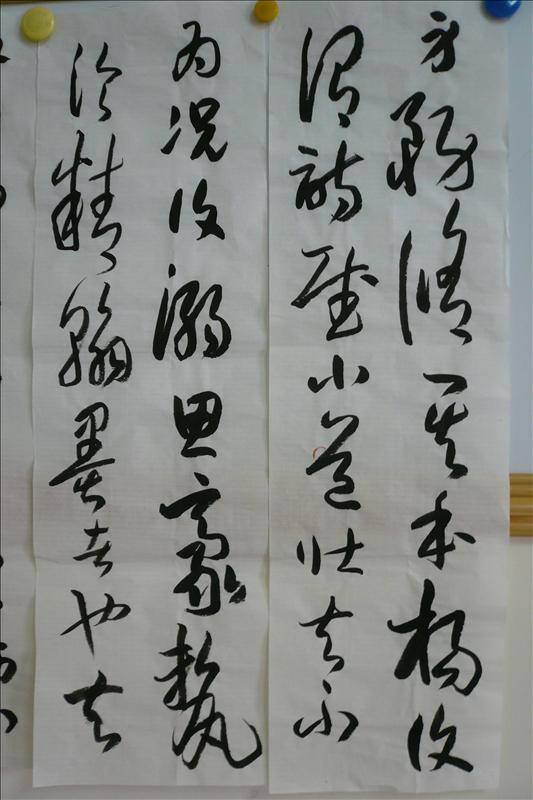 身務脩其本楊雄
謂詩賦小道壯夫不
為況復溺思豪氂
淪精翰墨者也夫